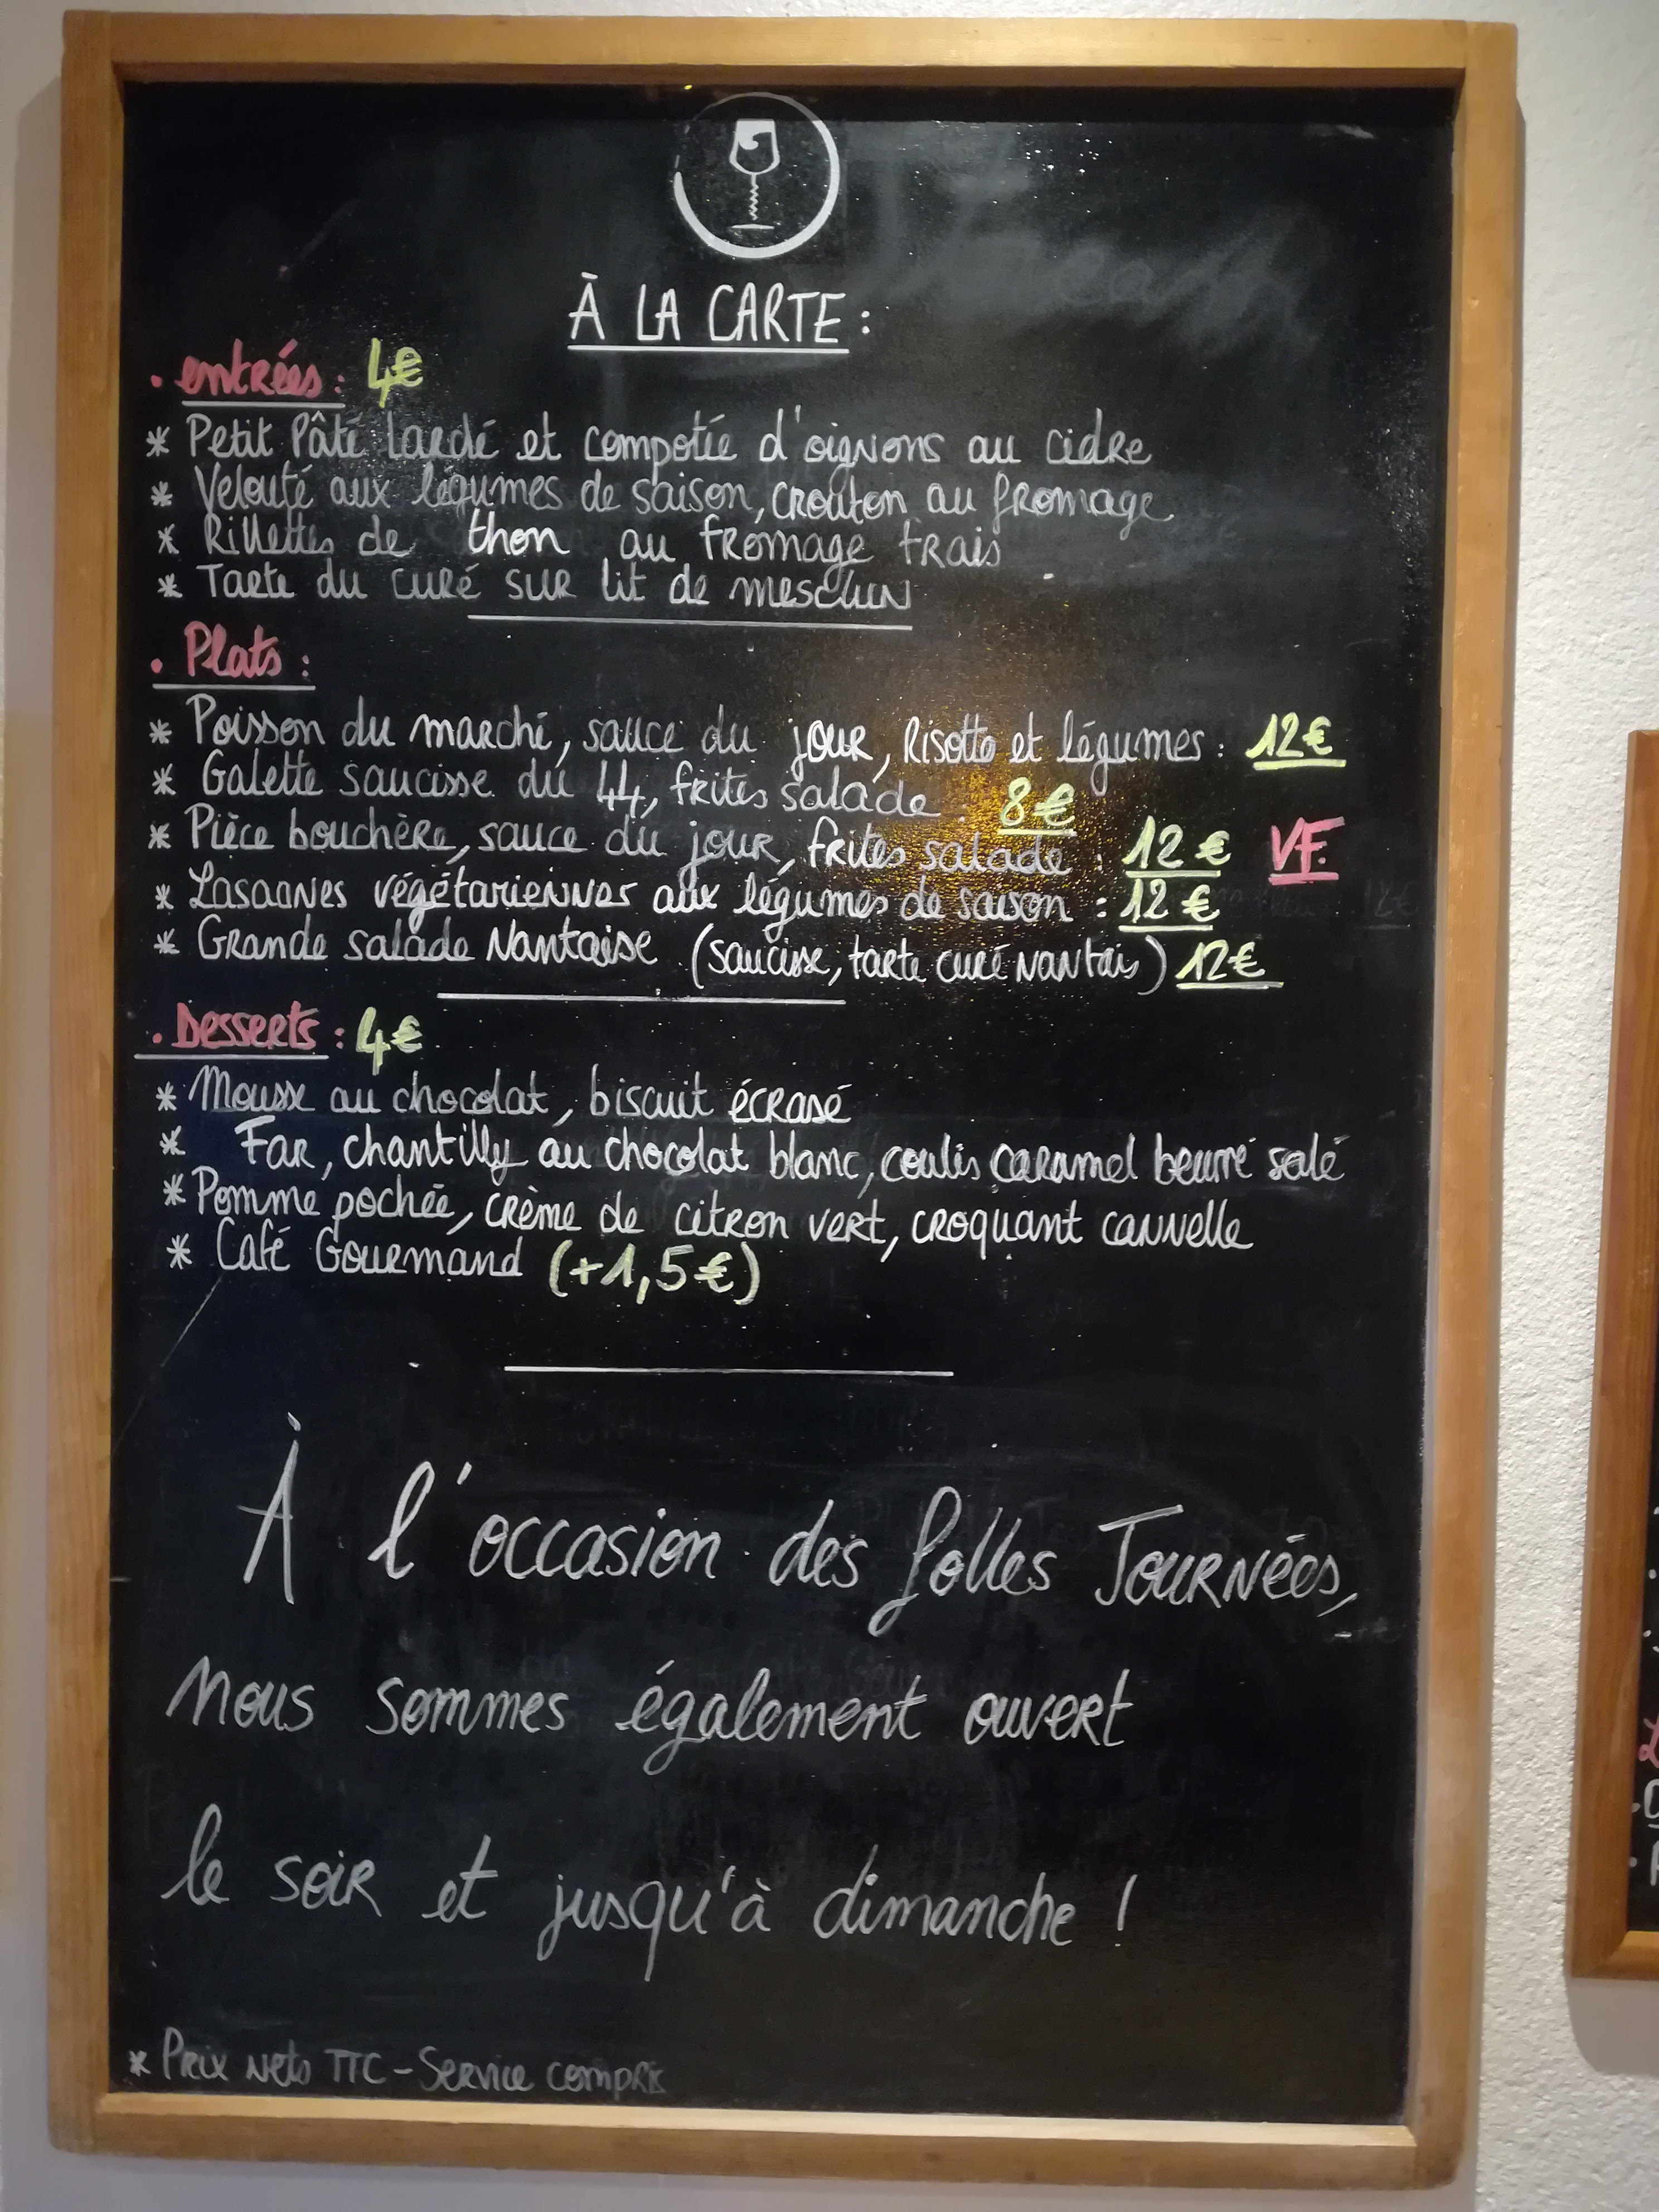 À LA CARTE :
• entrées : 4€
* Petit Pâté Lardé et compotée d'oignons au cidre
* Velouté aux légumes de saison, crouton au fromage
* Rillettes de thon au fromage frais
* Tarte du curé sur lit de mesclun
• Plats :
* Poisson du marché, sauce du jour, Risotto et légumes : 12€
* Galette saucisse du 44, frites salade : 8€
* Pièce bouchère, sauce du jour, frites salade : 12€ VF.
* Lasagnes végétariennes aux légumes de saison : 12€
* Grande salade Nantaise (saucisse, tarte curé Nantais) 12€
• Desserts : 4€
* Mousse au chocolat, biscuit écrasé
* Far, chantilly au chocolat blanc, coulis caramel beurre salé
* Pomme pochée, crème de citron vert, croquant cannelle
* Café Gourmand (+1,5€)
À l'occasion des folles Journées,
nous sommes également ouvert
le soir et jusqu'à dimanche !
* Prix Nets TTC - Service compris